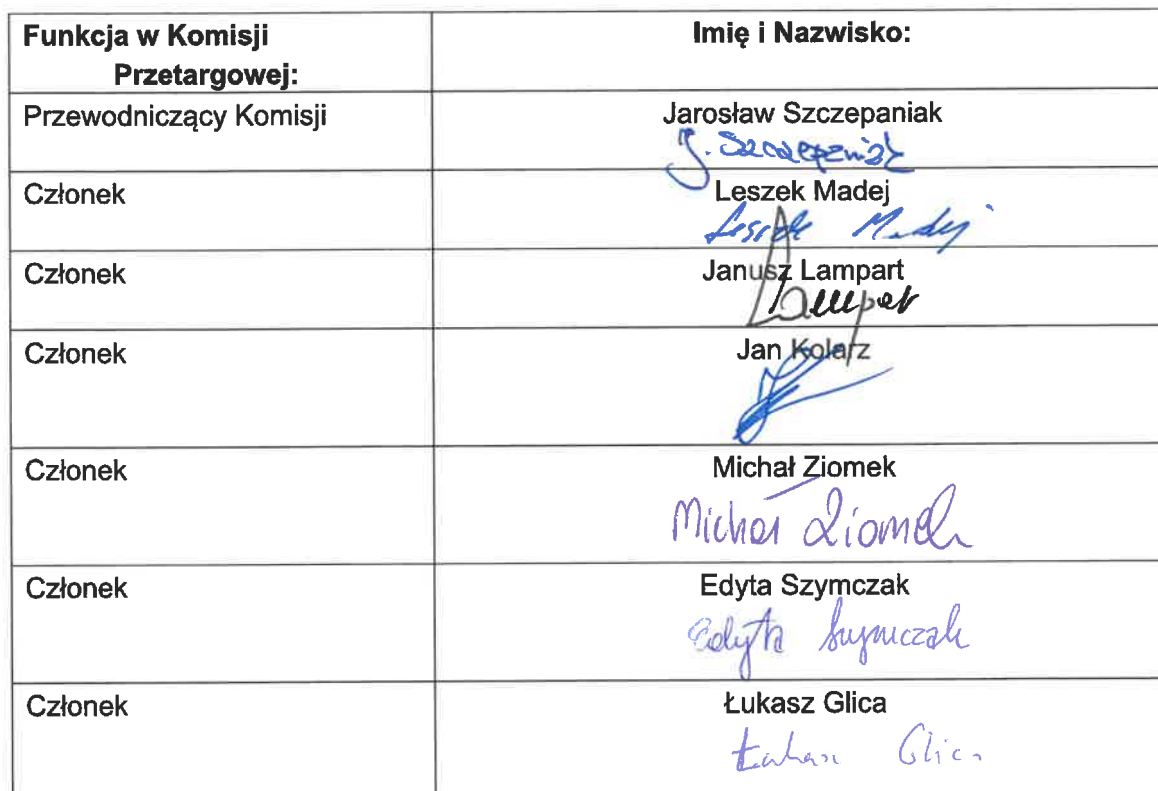 Funkcja w Komisji
Przetargowej:
Imię i Nazwisko:
Przewodniczący Komisji
Jarosław Szczepaniak
J. Szczepaniak
Członek
Leszek Madej
Leszek Madej
Członek
Janusz Lampart
Lampart
Członek
Jan Kolarz
Członek
Michał Ziomek
Michał Ziomek
Członek
Edyta Szymczak
Edyta Szymczak
Członek
Łukasz Glica
Łukasz Glica